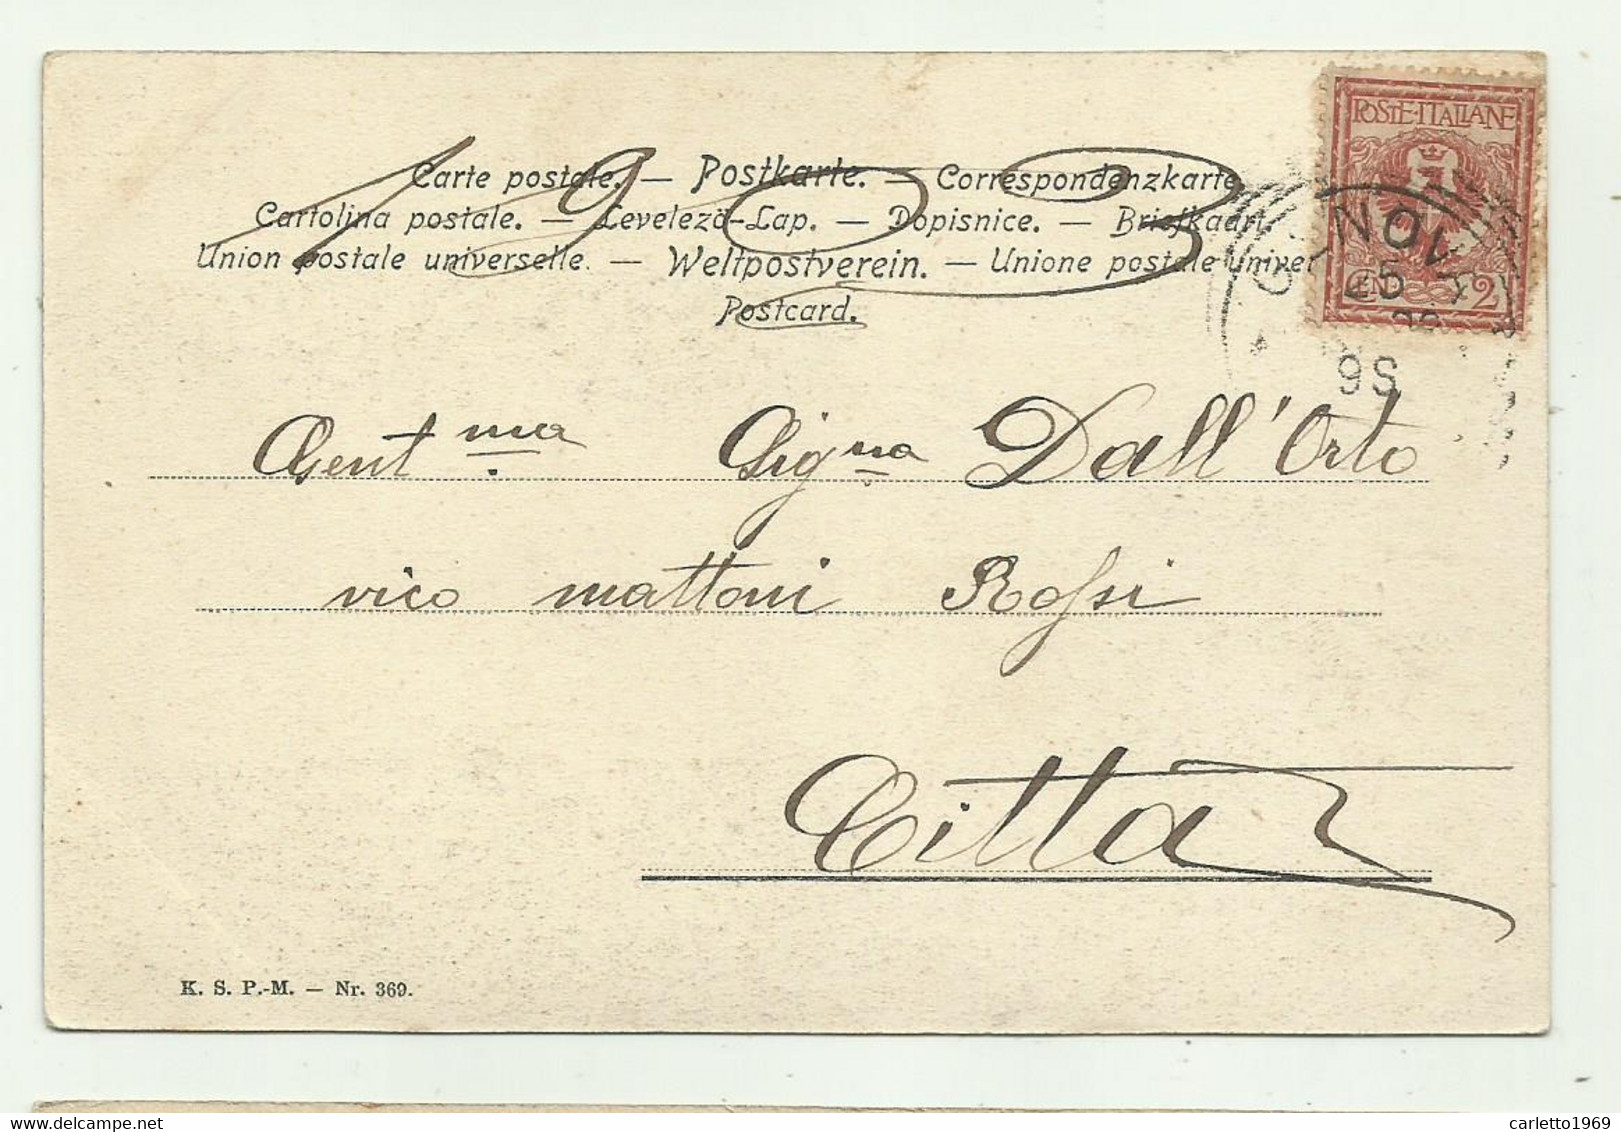 1903
Carte postale. — Postkarte. — Correspondenzkarte
Cartolina postale. — Levelező-Lap. — Dopisnice. — Briefkaart.
Union postale universelle. — Weltpostverein. — Unione postale univer
Postcard.
POSTE·ITALIANE
CEN 2
25
9S
Gent.ma Sig.na Dall'Orto
vico mattoni Rossi
Città
K. S. P.-M. — Nr. 369.
carletto1969